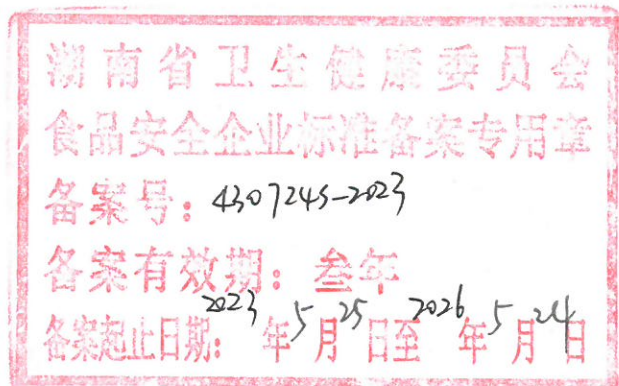 湖南省卫生健康委员会
食品安全企业标准备案专用章
备案号：4307245-2023
备案有效期：叁年
备案起止日期：2023年5月25日至2026年5月24日